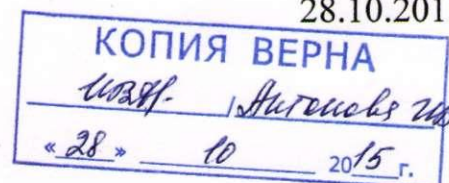 28.10.201
КОПИЯ ВЕРНА
/ Антонова
« 28 » 10 2015 г.